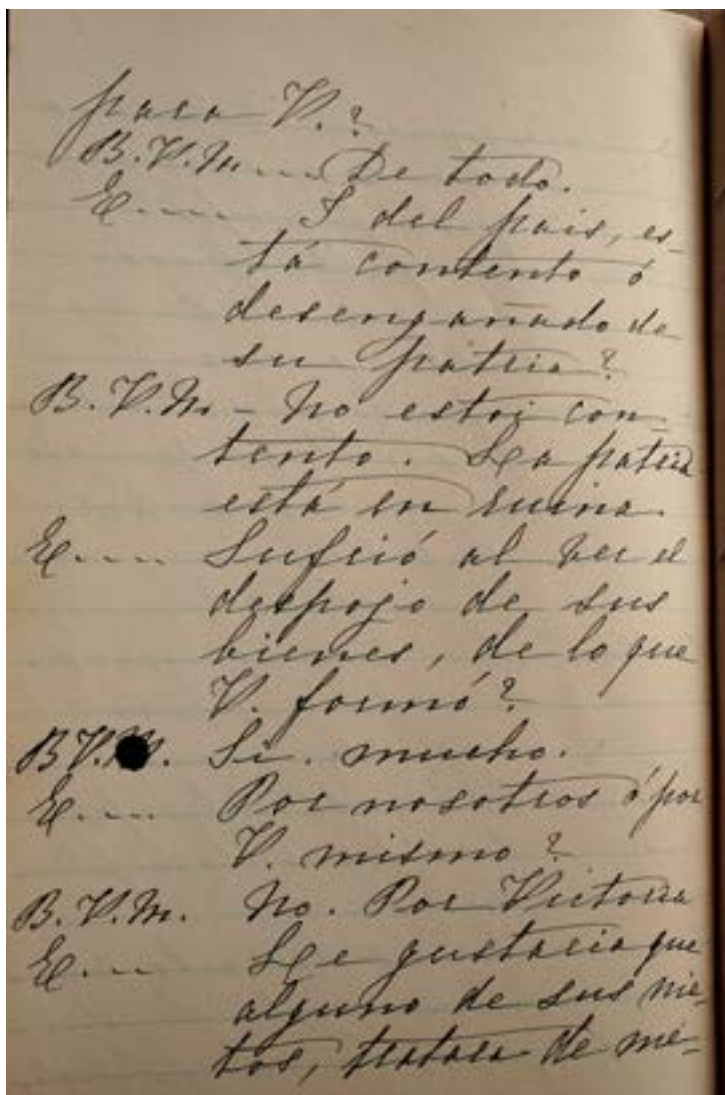 para V.?
B.V.M.... De todo.
E.... I del pais, es-
tá contento ó
desengañado de
su pátria?
B.V.M - No estoi con-
tento. La patria
está en ruina.
E.... Sufrió al ver el
despojo de sus
bienes, de lo que
V. formó?
B.V.M. Si. mucho.
E.... Por nosotros ó por
V. mismo?
B.V.M. No. Por Victoria
E.... Le gustaria que
alguno de sus nie-
tos, tratara de me-